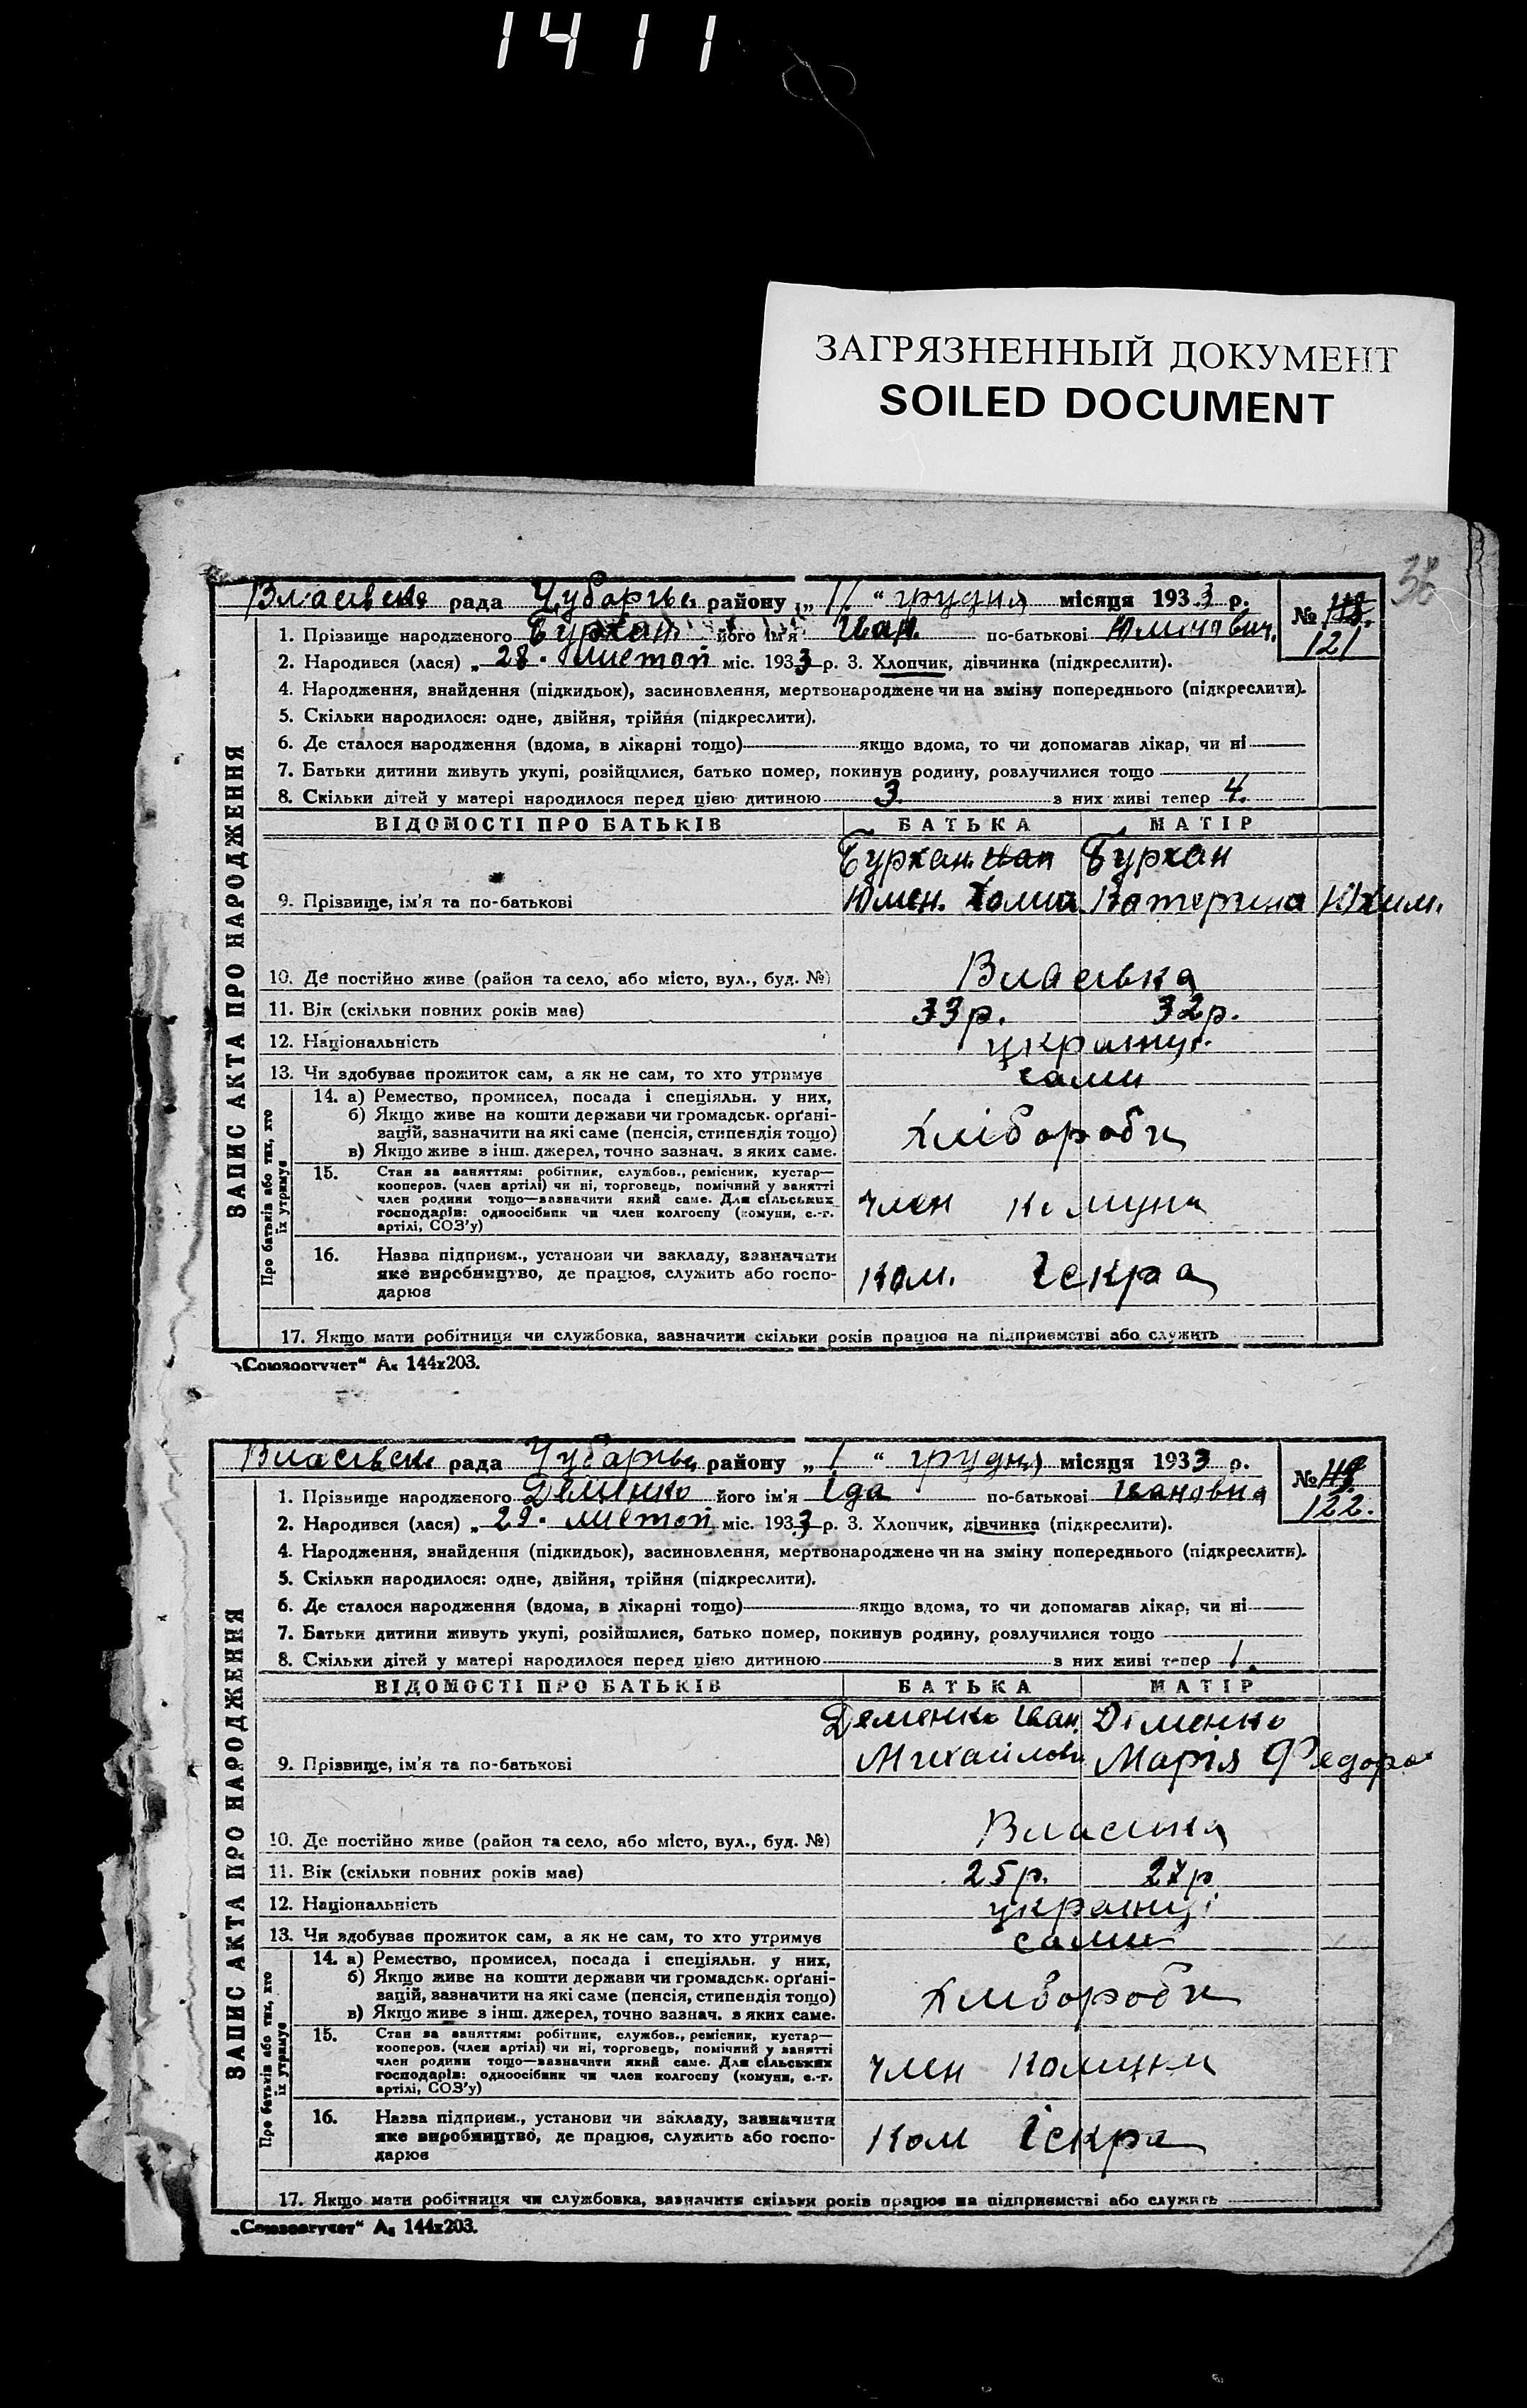 1411
ЗАГРЯЗНЕННЫЙ ДОКУМЕНТ
SOILED DOCUMENT
38
ЗАПИС АКТА ПРО НАРОДЖЕННЯ
Власівська рада Чубарівск району „ 1/ “ грудня місяця 1933 р. №
121
1. Прізвище народженого Бурхан його ім'я Іван по-батькові
2. Народився (лася) „ 28. листоп міс. 1933 р. 3. Хлопчик, дівчинка (підкреслити).
4. Народження, знайдення (підкидьок), засиновлення, мертвонароджене чи на зміну попереднього (підкреслити).
5. Скільки народилося: одне, двійня, трійня (підкреслити).
6. Де сталося народження (вдома, в лікарні тощо) якщо вдома, то чи допомагав лікар, чи ні
7. Батьки дитини живуть укупі, розійшлися, батько помер, покинув родину, розлучилися тощо
8. Скільки дітей у матері народилося перед цією дитиною 3. з них живі тепер 4.
ВІДОМОСТІ ПРО БАТЬКІВ БАТЬКА МАТІР
Бурхан Іван Бурхан
9. Прізвище, ім'я та по-батькові Юмен. Хома Катерина Юхим.
10. Де постійно живе (район та село, або місто, вул., буд. №) Власівка
11. Вік (скільки повних років має) 33р. 32р.
12. Національність українці
13. Чи здобуває прожиток сам, а як не сам, то хто утримує сами
Про батьків або тих, хто їх утримує
14. а) Ремество, промисел, посада і спеціяльн. у них,
б) Якщо живе на кошти держави чи громадськ. орґані-
зацій, зазначити на які саме (пенсія, стипендія тощо)
в) Якщо живе з інш. джерел, точно зазнач. з яких саме.
хлібороби
15. Стан за заняттям: робітник, службов., ремісник, кустар—
кооперов. (член артілі) чи ні, торговець, помічний у занятті
член родини тощо—зазначити який саме. Для сільських
господарів: одноосібник чи член колгоспу (комуни, с.-г.
артілі, СОЗ'у)
член комуни
16. Назва підприєм., установи чи закладу, зазначити
яке виробництво, де працює, служить або госпо-
дарює
ком. Іскра
17. Якщо мати робітниця чи службовка, зазначити скільки років працює на підприємстві або служить
„Союзоргучет“ А₆ 144х203.
ЗАПИС АКТА ПРО НАРОДЖЕННЯ
Власівська рада Чубарівск району „ 1 “ грудня місяця 1933 р. №
122.
1. Прізвище народженого Деменко його ім'я Іда по-батькові Івановна
2. Народився (лася) „ 29. листоп міс. 1933 р. 3. Хлопчик, дівчинка (підкреслити).
4. Народження, знайдення (підкидьок), засиновлення, мертвонароджене чи на зміну попереднього (підкреслити).
5. Скільки народилося: одне, двійня, трійня (підкреслити).
6. Де сталося народження (вдома, в лікарні тощо) якщо вдома, то чи допомагав лікар, чи ні
7. Батьки дитини живуть укупі, розійшлися, батько помер, покинув родину, розлучилися тощо
8. Скільки дітей у матері народилося перед цією дитиною з них живі тепер 1.
ВІДОМОСТІ ПРО БАТЬКІВ БАТЬКА МАТІР
Деменко Іван Деменко
9. Прізвище, ім'я та по-батькові Михайлов Марія Федоро
10. Де постійно живе (район та село, або місто, вул., буд. №) Власівка
11. Вік (скільки повних років має) 25р. 27р
12. Національність українці
13. Чи здобуває прожиток сам, а як не сам, то хто утримує сами
Про батьків або тих, хто їх утримує
14. а) Ремество, промисел, посада і спеціяльн. у них,
б) Якщо живе на кошти держави чи громадськ. орґані-
зацій, зазначити на які саме (пенсія, стипендія тощо)
в) Якщо живе з інш. джерел, точно зазнач. з яких саме.
хлібороби
15. Стан за заняттям: робітник, службов., ремісник, кустар—
кооперов. (член артілі) чи ні, торговець, помічний у занятті
член родини тощо—зазначити який саме. Для сільських
господарів: одноосібник чи член колгоспу (комуни, с.-г.
артілі, СОЗ'у)
член комуни
16. Назва підприєм., установи чи закладу, зазначити
яке виробництво, де працює, служить або госпо-
дарює
Ком Іскра
17. Якщо мати робітниця чи службовка, зазначити скільки років працює на підприємстві або служить
„Союзоргучет“ А₆ 144х203.